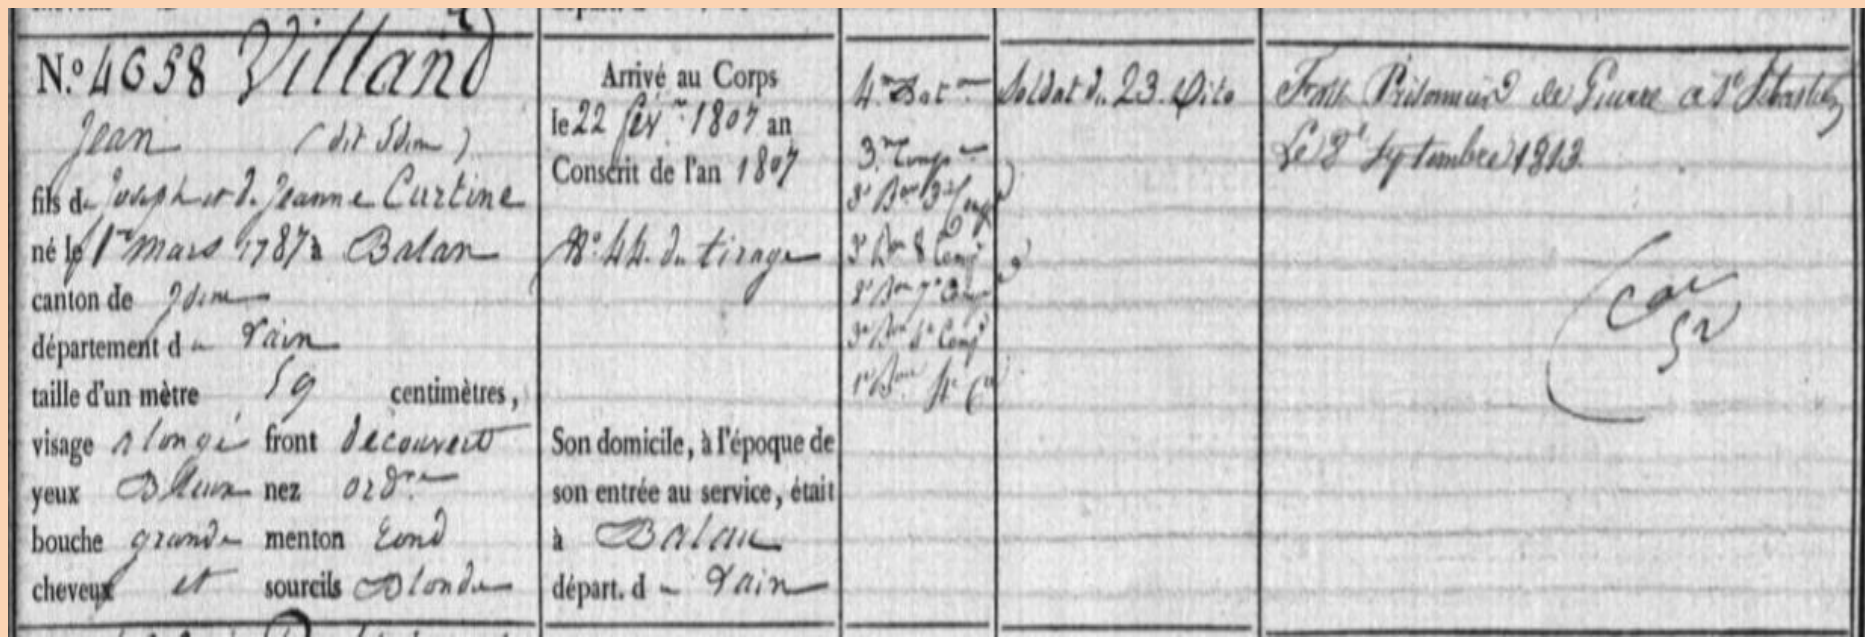 N.º 4658 Villand
Jean (dit
fils de Joseph et de Jeanne Curtine
né le 1er mars 1787 à Balan
canton de
département d
taille d'un mètre 59 centimètres,
visage alongé front découvert
yeux Bleux nez ordre
bouche grande menton rond
cheveux et sourcils Blonds
Arrivé au Corps
le 22 fév.r 1807 an
Conscrit de l'an 1807
N.º 44. du tirage
Son domicile, à l'époque de
son entrée au service, était
à Balan
départ. d
4.me Bat.on
3.me Comp.e
3e Bon 3e Comp
3e Bon 8 Comp
Bon Comp
3e Bon Comp
1er Bon 4e Cie
Soldat du 23. Dito
Prisonnier de Guerre a St Sebastien
Le 8 Septembre 1813